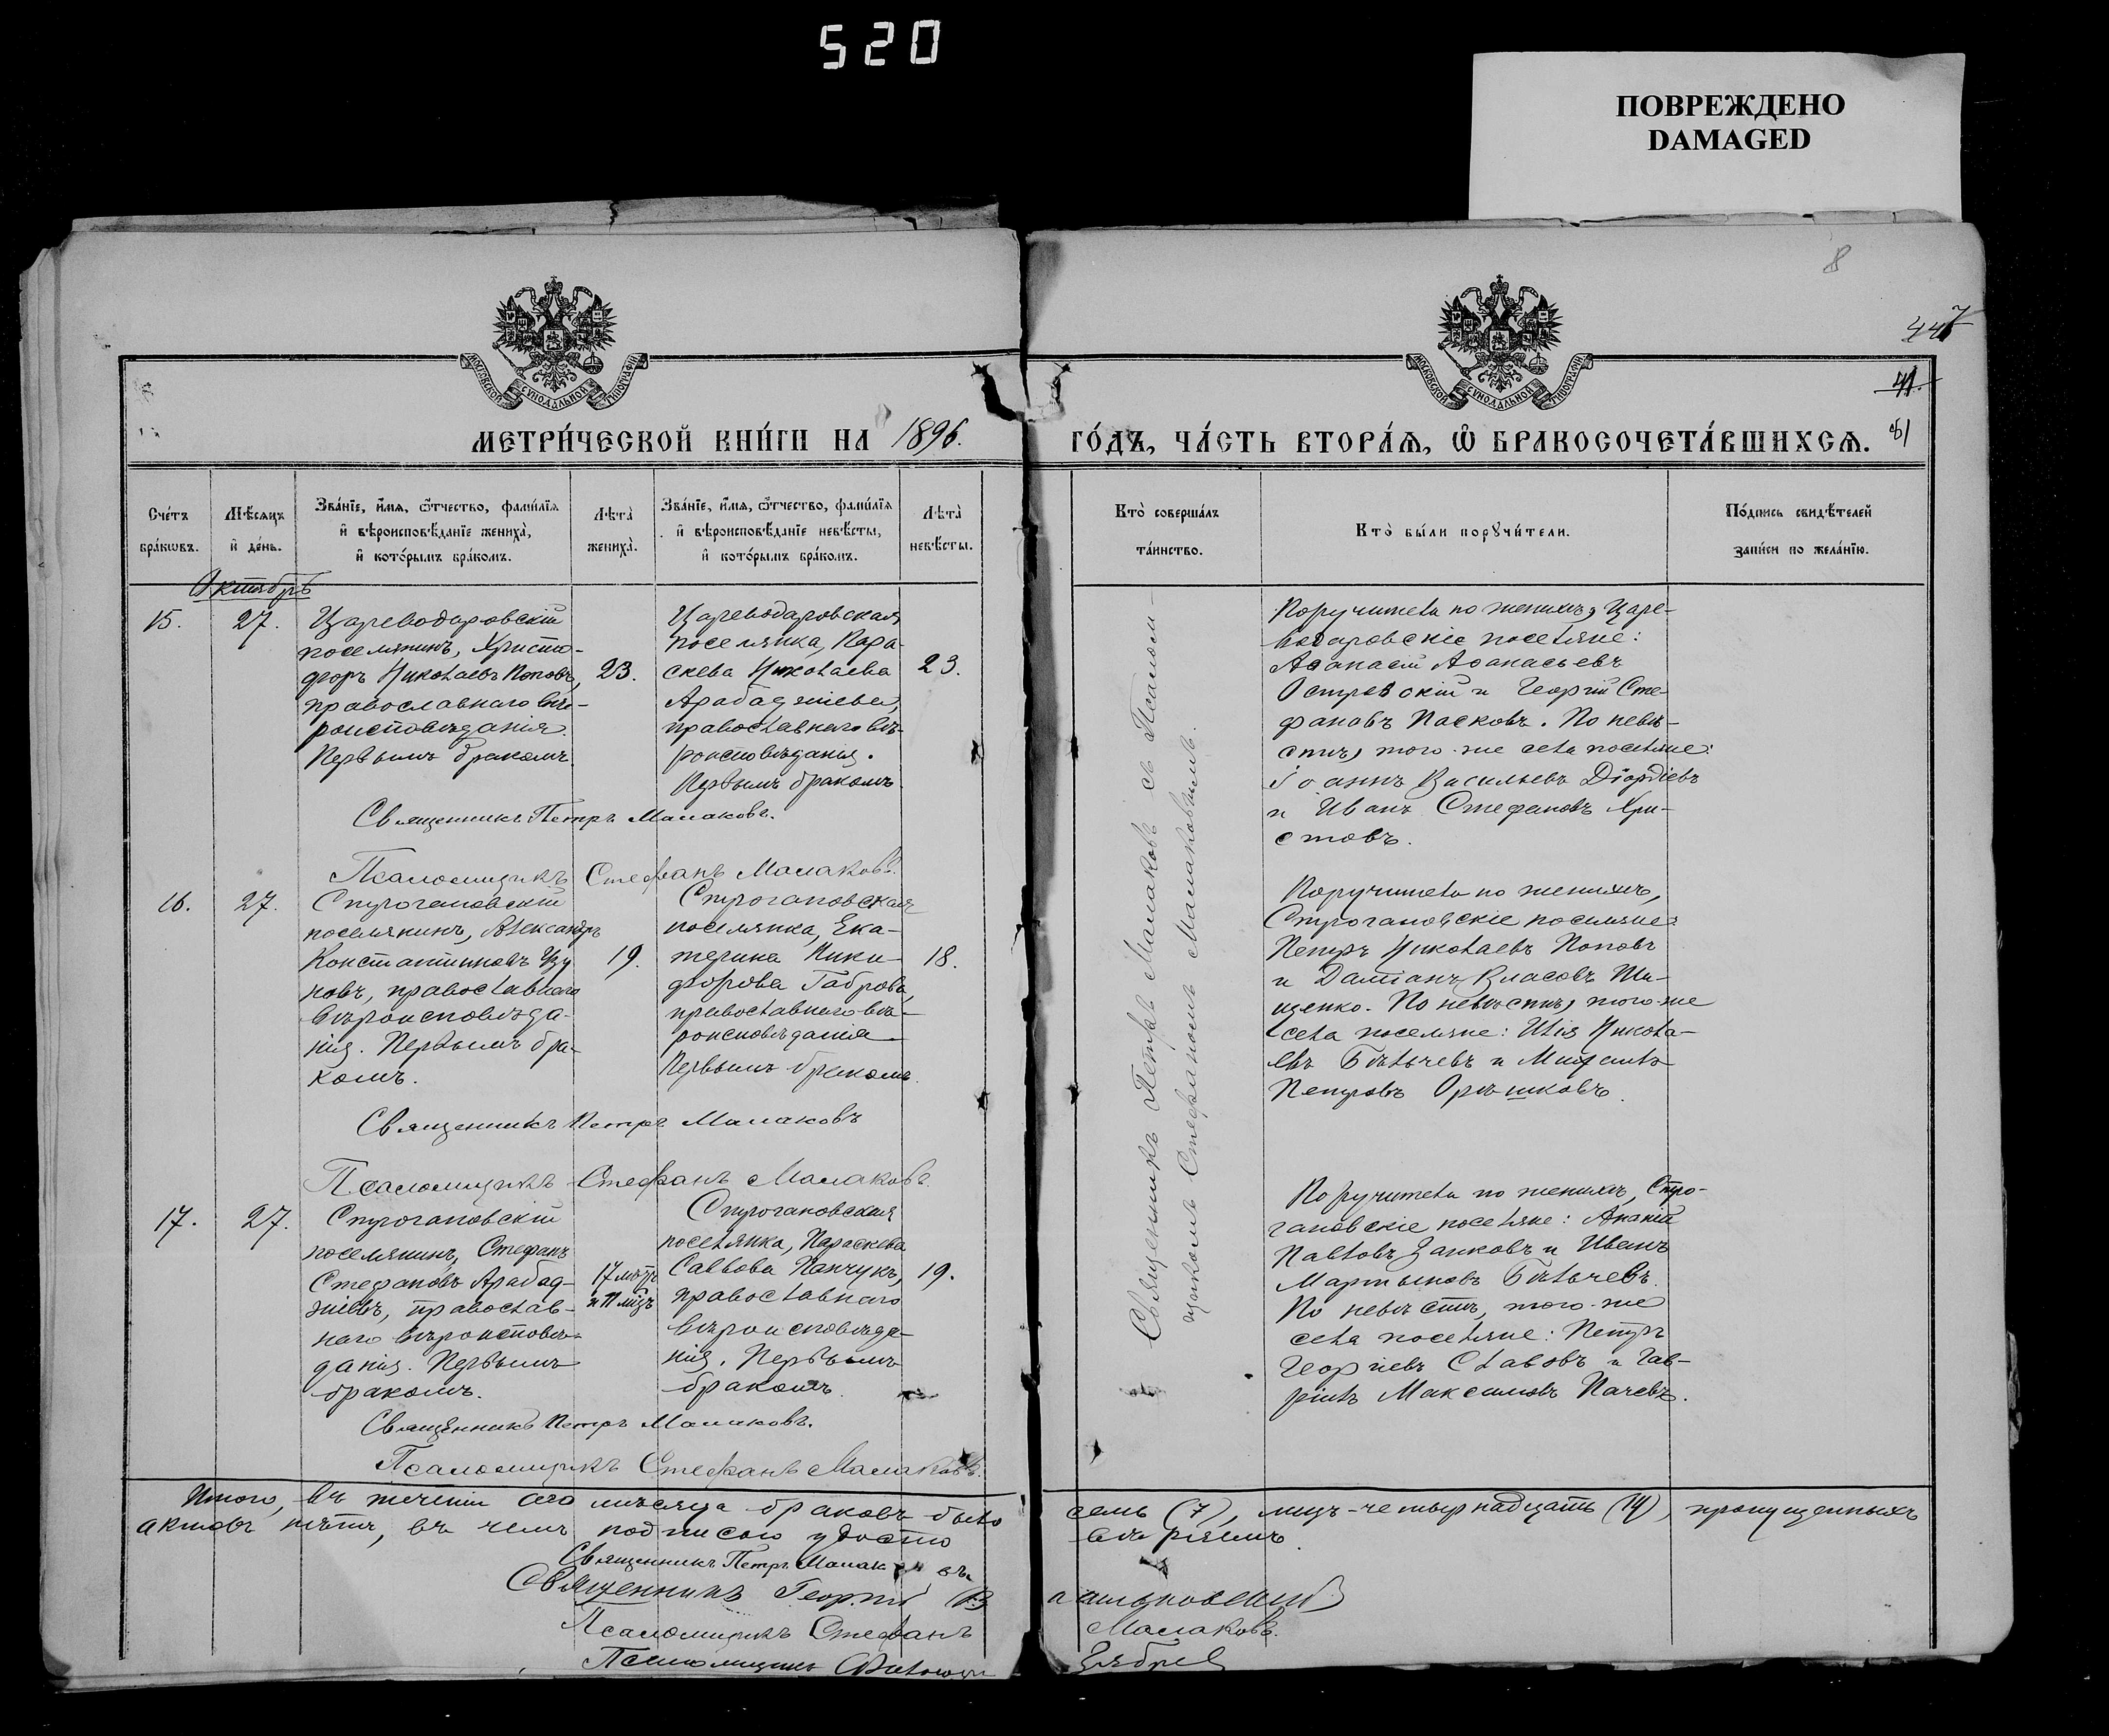 520
ПОВРЕЖДЕНО
DAMAGED
8
447
41.
81
МОСКОВСКОЙ СѴНОДАЛЬНОЙ ТИПОГРАФІИ
МОСКОВСКОЙ СѴНОДАЛЬНОЙ ТИПОГРАФІИ
МЕТРИ́ЧЕСКОЙ КНИ́ГИ НА 1896.
ГО́ДЪ, ЧА́СТЬ ВТОРА́Ѧ, Ѽ БРАКОСОЧЕТА́ВШИХСѦ.
Сче́тъ
бра́кѡвъ.
Мѣ́сяцъ
и҆ де́нь.
Зва́нїе, и҆́мя, ѻ҆́тчество, фами́лїя
и҆ вѣроисповѣ́данїе жениха̀,
и҆ кото́рымъ бра́комъ.
Лѣ́та̀
жениха̀.
Зва́нїе, и҆́мя, ѻ҆́тчество, фами́лїя
и҆ вѣроисповѣ́данїе невѣ́сты,
и҆ кото́рымъ бра́комъ.
Лѣ́та̀
невѣ́сты.
Кто̀ соверша́лъ
та́инство.
Кто̀ бы́ли порꙋчи́тели.
По́дпись свидѣ́телей
за́писи по жела́нїю.
Октябрь
15.
27.
Цареводаровскій
поселянинъ, Христо-
форъ Николаевъ Поповъ,
православнаго вѣ-
роисповѣданія.
Первымъ бракомъ.
23.
Цареводаровская
поселянка, Пара-
скева Николаева
Арабаджіева,
православнаго вѣ-
роисповѣданія.
Первымъ бракомъ.
23.
Священникъ Петръ Малаковъ.
Псаломщикъ Стефанъ Малаковъ.
Поручители по женихѣ, Царе-
водаровскіе поселяне:
Аѳанасій Аѳанасьевъ
Островскій и Георгій Сте-
фановъ Пасковъ. По невѣ-
стѣ, того-же села поселяне:
Іоаннъ Васильевъ Діордіевъ
и Иванъ Стефановъ Хри-
стовъ.
16.
27.
Строгановскій
поселянинъ, Александръ
Константиновъ Узу
новъ, православнаго
вѣроисповѣда-
нія. Первымъ бра-
комъ.
19.
Строгановская
поселянка, Ека-
терина Ники-
форова Габрова,
православнаго вѣ-
роисповѣданія
Первымъ бракомъ.
18.
Священникъ Петръ Малаковъ
Псаломщикъ Стефанъ Малаковъ.
Поручители по женихѣ,
Строгановскіе поселяне:
Петръ Николаевъ Поповъ
и Даміанъ Власовъ Ти-
щенко. По невѣстѣ, того-же
села поселяне: Илія Никола-
евъ Бѣлычевъ и Михаилъ
Петровъ Орѣшковъ.
17.
27.
Строгановскій
поселянинъ, Стефанъ
Стефановъ Арабад-
жіевъ, православ-
наго вѣроисповѣ-
данія. Первымъ
бракомъ.
17 лѣтъ
и 11 м-цъ
Строгановская
поселянка, Параскева
Саввова Панчукъ,
православнаго
вѣроисповѣда-
нія. Первымъ
бракомъ.
19.
Священникъ Петръ Малаковъ.
Псаломщикъ Стефанъ Малаковъ.
Поручители по женихѣ, Стро-
гановскіе поселяне: Ананій
Павловъ Занковъ и Иванъ
Мартыновъ Бѣлычевъ.
По невѣстѣ, того-же
села поселяне: Петръ
Георгіевъ Славовъ и Гав-
ріилъ Максимовъ Пачевъ.
Священникъ Петръ Малаковъ съ Псалом-
щикомъ Стефаномъ Малаковымъ.
Итого, въ теченіи сего мѣсяца браковъ было семь (7), лицъ-четырнадцать (14), пропущенныхъ
актовъ нѣтъ, въ чемъ подписью удостовѣряемъ.
Священникъ Петръ Малаковъ.
Священникъ Георгій
Псаломщикъ Стефанъ Малаковъ.
Псаломщикъ